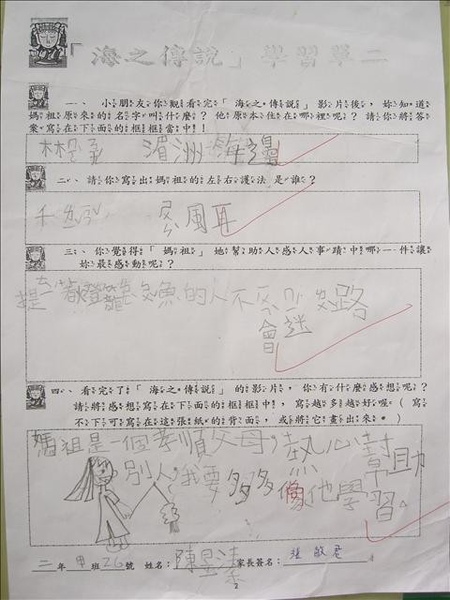 「海之傳說」學習單二
一、小朋友你觀看完「海之傳說」影片後，妳知道
媽祖原來的名字叫什麼？他原本住在哪裡呢？請你將答
案寫在下面的框框當中！
林 湄洲海邊
二、請你寫出媽祖的左右護法是誰？
千 風耳
三、你覺得「媽祖」她幫助人感人事蹟中哪一件讓
妳最感動呢？
提 燈籠 魚的人不 路
會迷
四、看完了「海之傳說」的影片，你有什麼感想呢？
請將感想寫在下面的框框中！，寫越多越好喔（寫
不下可寫在這張紙的背面，或將它畫出來。）
媽祖是一個孝順父母，熱心幫助
別人，我要多多像他學習。
二年甲班26號 姓名：陳昱 家長簽名：張敏君
2